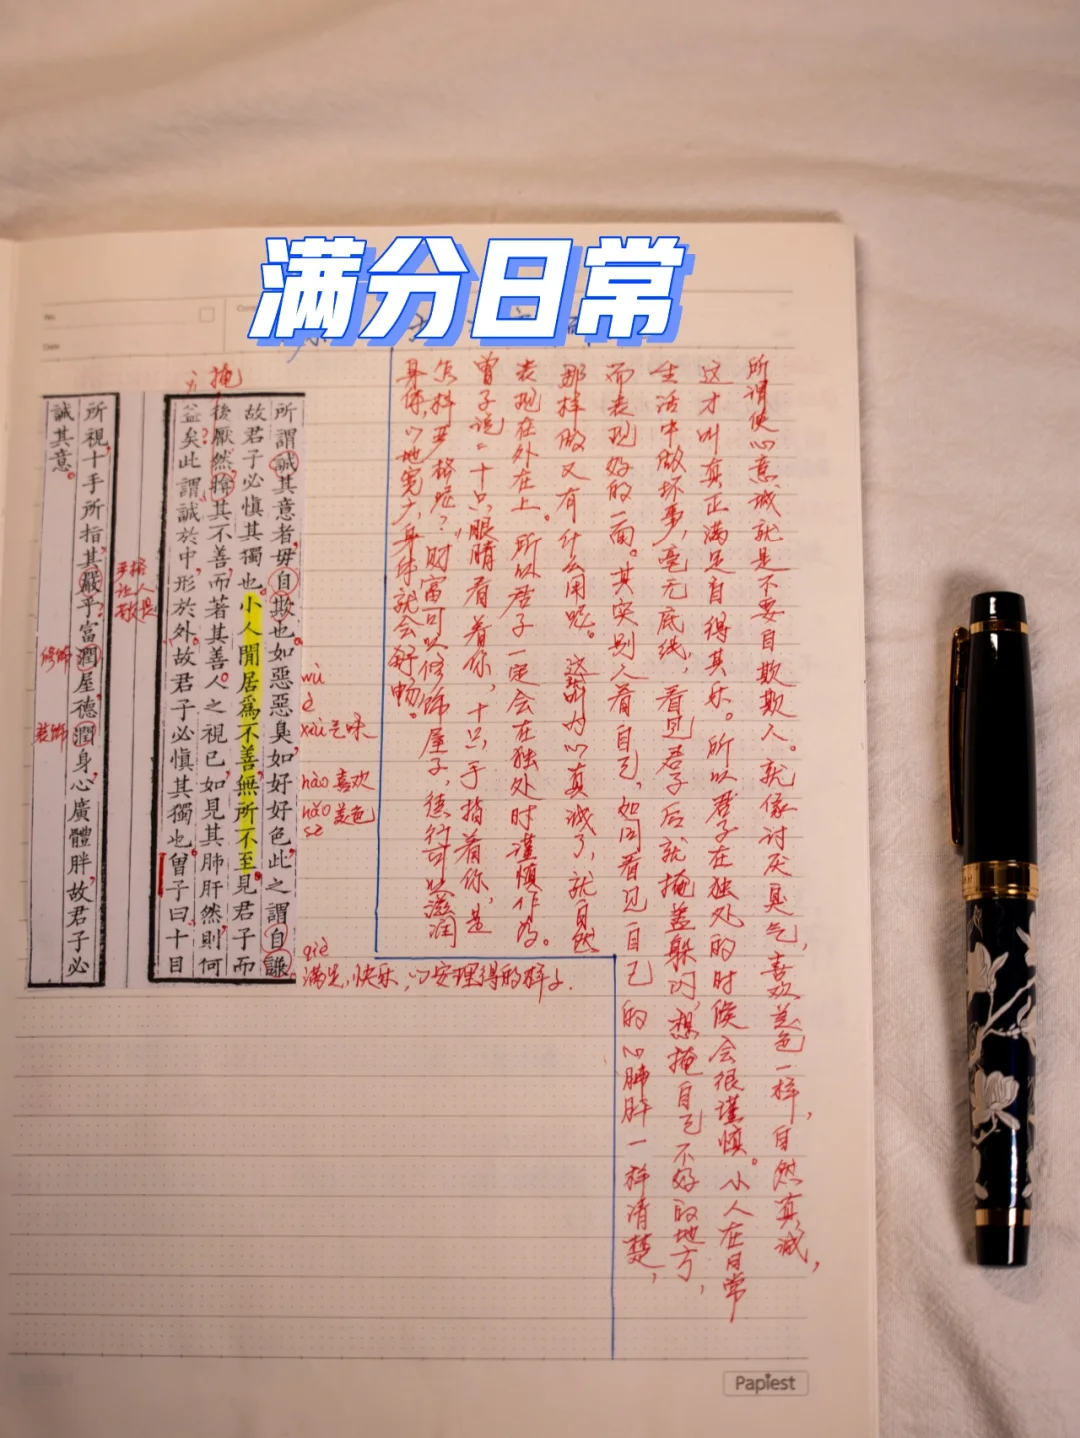 满分日常
No.
Date
所謂誠其意者毋自欺也如惡惡臭如好好色此之謂自謙
故君子必慎其獨也小人閒居為不善無所不至見君子而
後厭然揜其不善而著其善人之視已如見其肺肝然則何
益矣此謂誠於中形於外故君子必慎其獨也曾子曰十目
所視十手所指其嚴乎富潤屋德潤身心廣體胖故君子必
誠其意
掩
修饰
装饰
wù
è
xiù气味
hào 喜欢
hǎo 美色
sè
qiè
满足,快乐,心安理得的样子.
所谓使心意诚就是不要自欺欺人。就像讨厌臭气,喜欢美色一样,自然真诚,
这才叫真正满足自得其乐。所以君子在独处的时候会很谨慎。小人在日常
生活中做坏事,毫无底线,看见君子后就掩盖躲闪,想掩自己不好的地方,
而表现好的一面。其实别人看自己,如同看见自己的心肺肝一样清楚,
那样做又有什么用呢。这就叫为心真诚了,就自然
表现在外在上。所以君子一定会在独处时谨慎作为。
曾子说:十只眼睛看着你,十只手指着你,是
怎样严格呢?财富可以修饰屋子,德行可以滋润
身体,心地宽广,身体就会舒畅。
Papiest